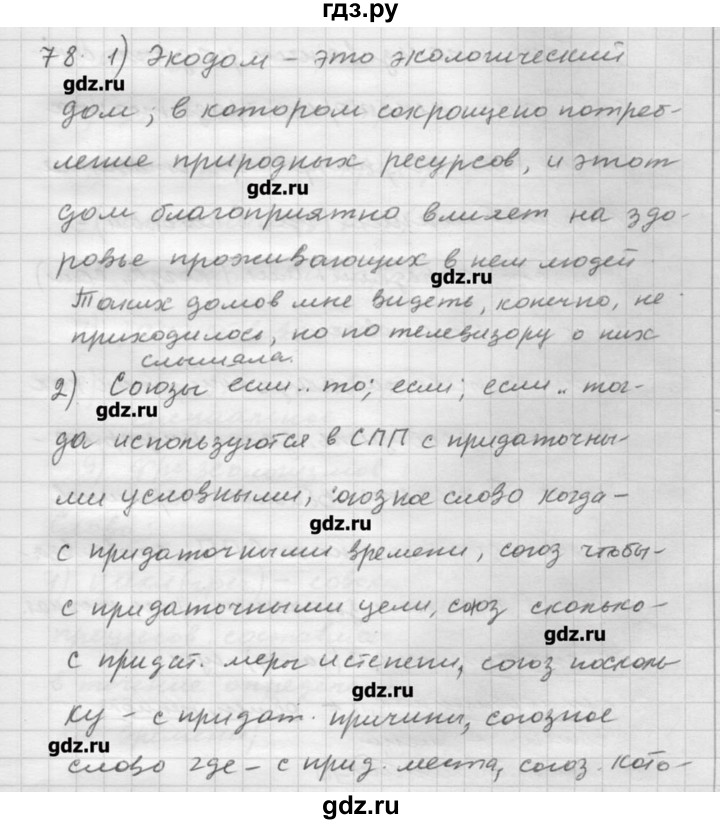 гдз.ру
78. 1) Экодом – это экологический
gdz.ru
дом, в котором сокращено потреб-
ление природных ресурсов, и этот
gdz.ru
дом благоприятно влияет на здо-
ровье проживающих в нем людей
gdz.ru
Таких домов мне видеть, конечно, не
приходилось, но по телевизору о них
слышала.
2) Союзы если.. то; если; если.. тог-
gdz.ru
да используются в СПП с придаточны-
ми условными, союзное слово когда –
gdz.ru
с придаточными времени, союз чтобы –
с придаточными цели, союз сколько –
gdz.ru
с придат. меры и степени, союз посколь-
gdz.ru
ку – с придат. причины, союзное
gdz.ru
слово где – с прид. места, союз. кото-
gdz.ru